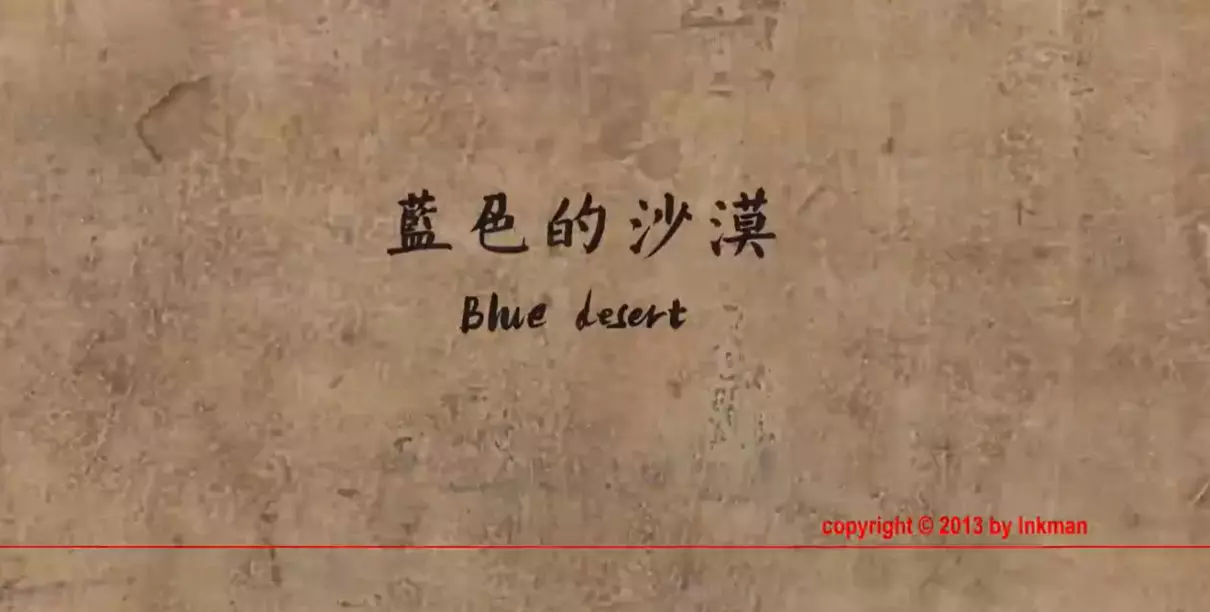 藍色的沙漠
Blue desert
copyright © 2013 by Inkman